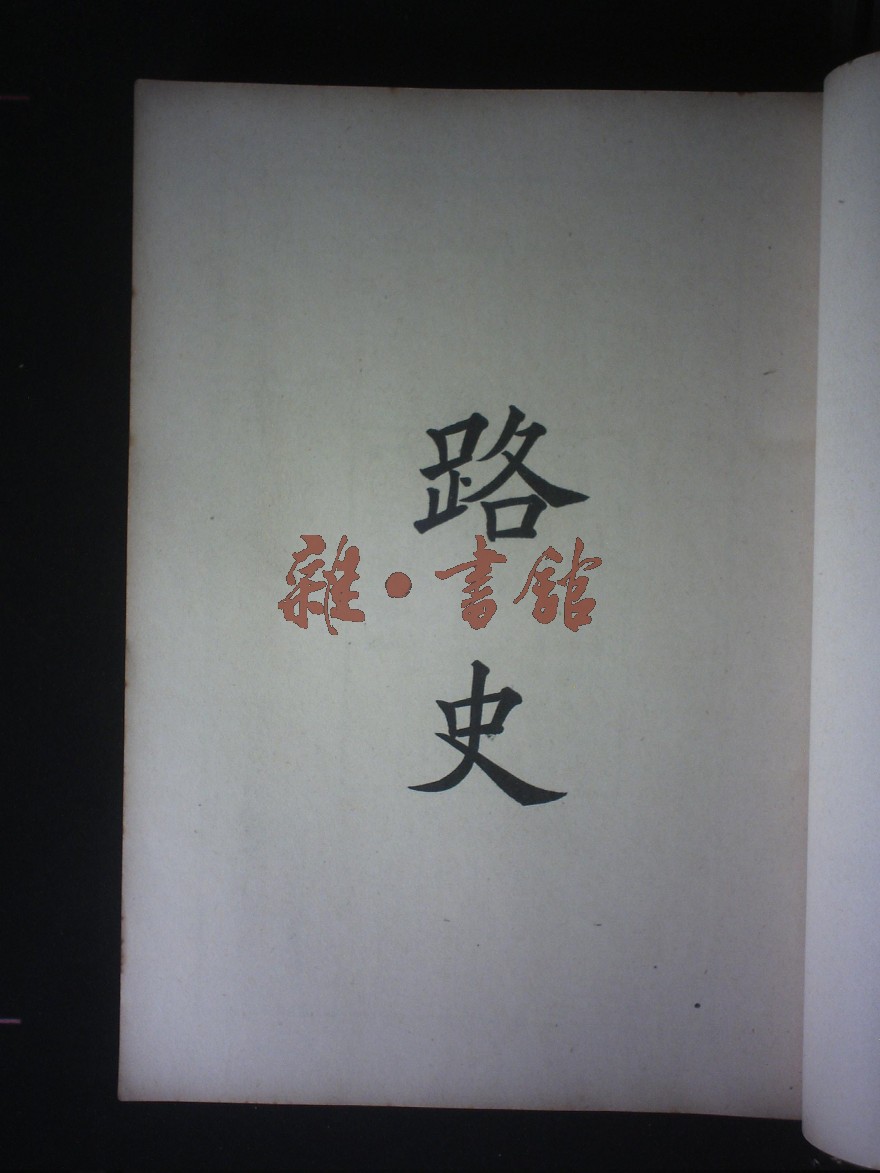 路史
雜·書館